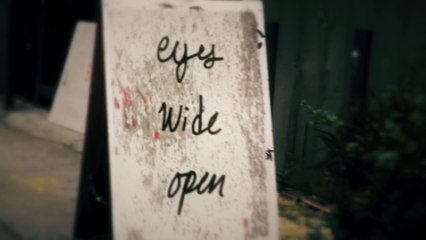 eyes
wide
open